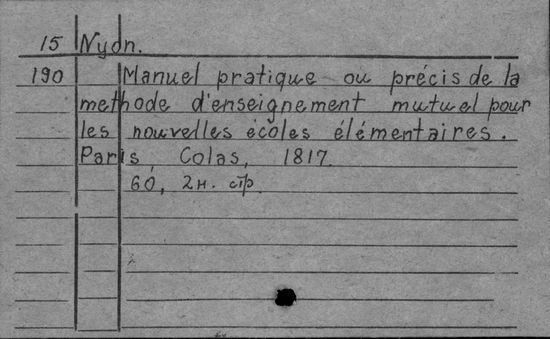 15 Nyon.
190 Manuel pratique ou précis de la
methode d'enseignement mutuel pour
les nouvelles écoles élémentaires.
Paris, Colas, 1817.
60, 2н. стр.